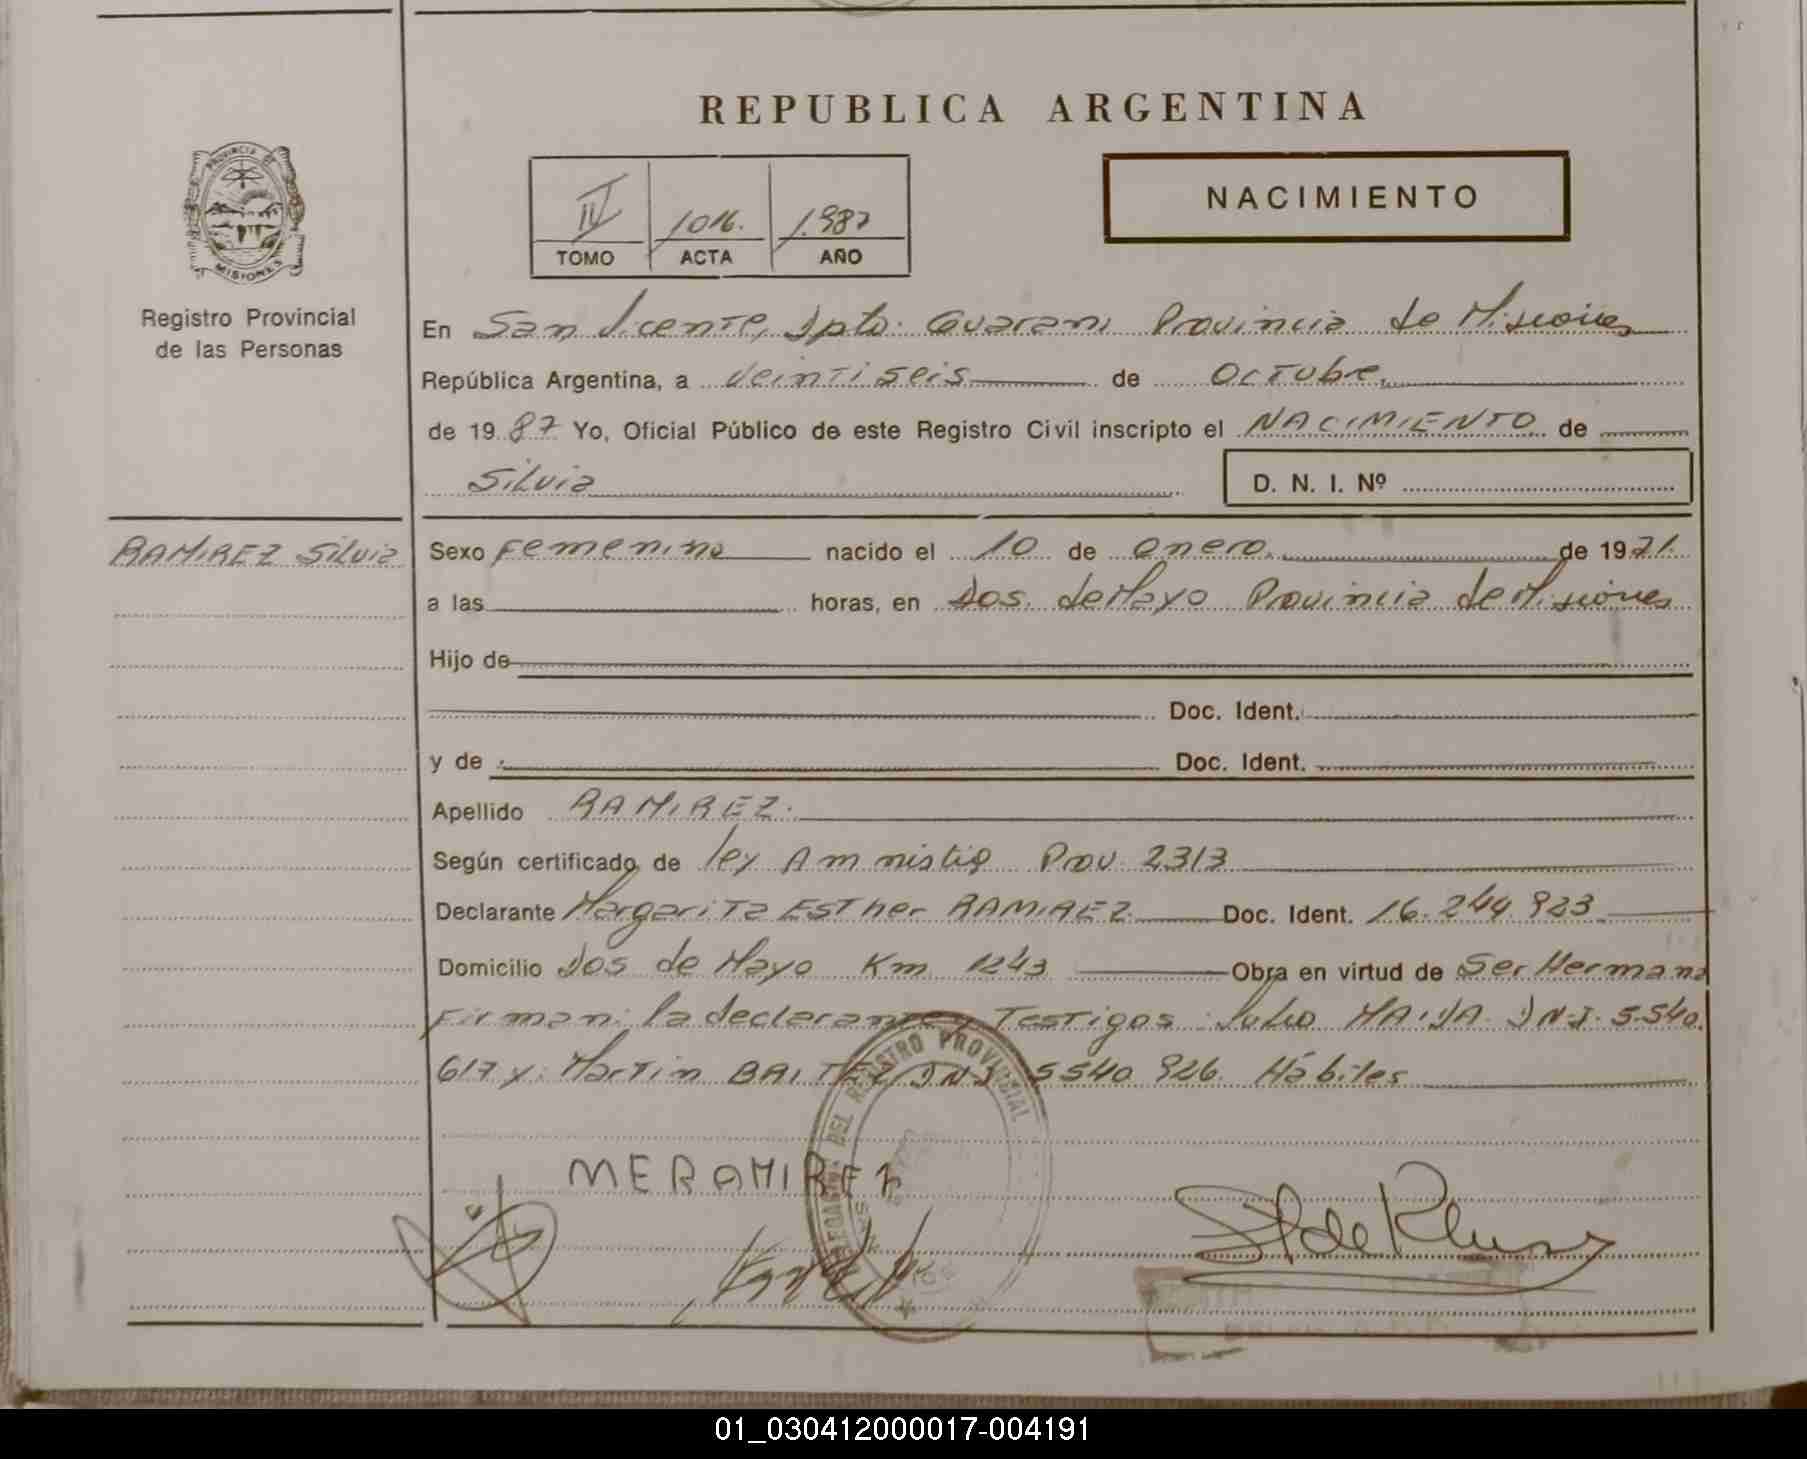 REPUBLICA ARGENTINA
PROVINCIA DE
MISIONES
Registro Provincial
de las Personas
IV 1016. 1.987
TOMO ACTA AÑO
NACIMIENTO
En San Vicente, Dpto. Guarani Provincia de Misiones
República Argentina, a veintiseis de Octubre,
de 1987 Yo, Oficial Público de este Registro Civil inscripto el NACIMIENTO de
Silvia D. N. I. Nº
RAMIREZ Silvia
Sexo Femenino nacido el 10 de enero. de 1971.
a las horas, en Dos de Mayo Provincia de Misiones
Hijo de
Doc. Ident.
y de Doc. Ident.
Apellido RAMIREZ.
Según certificado de ley Amnistia Prov. 2313
Declarante Margarita Esther RAMIREZ Doc. Ident. 16.244.923
Domicilio Dos de Mayo Km 1243 Obra en virtud de Ser Hermana
Firman: la declarante, Testigos: Julio MAIDA D.N.I. 5.540.
617 y: Martin BAITEZ DNI 5540 926. Hábiles
DELEGACION DEL REGISTRO PROVINCIAL
MERAMIREZ
01_030412000017-004191